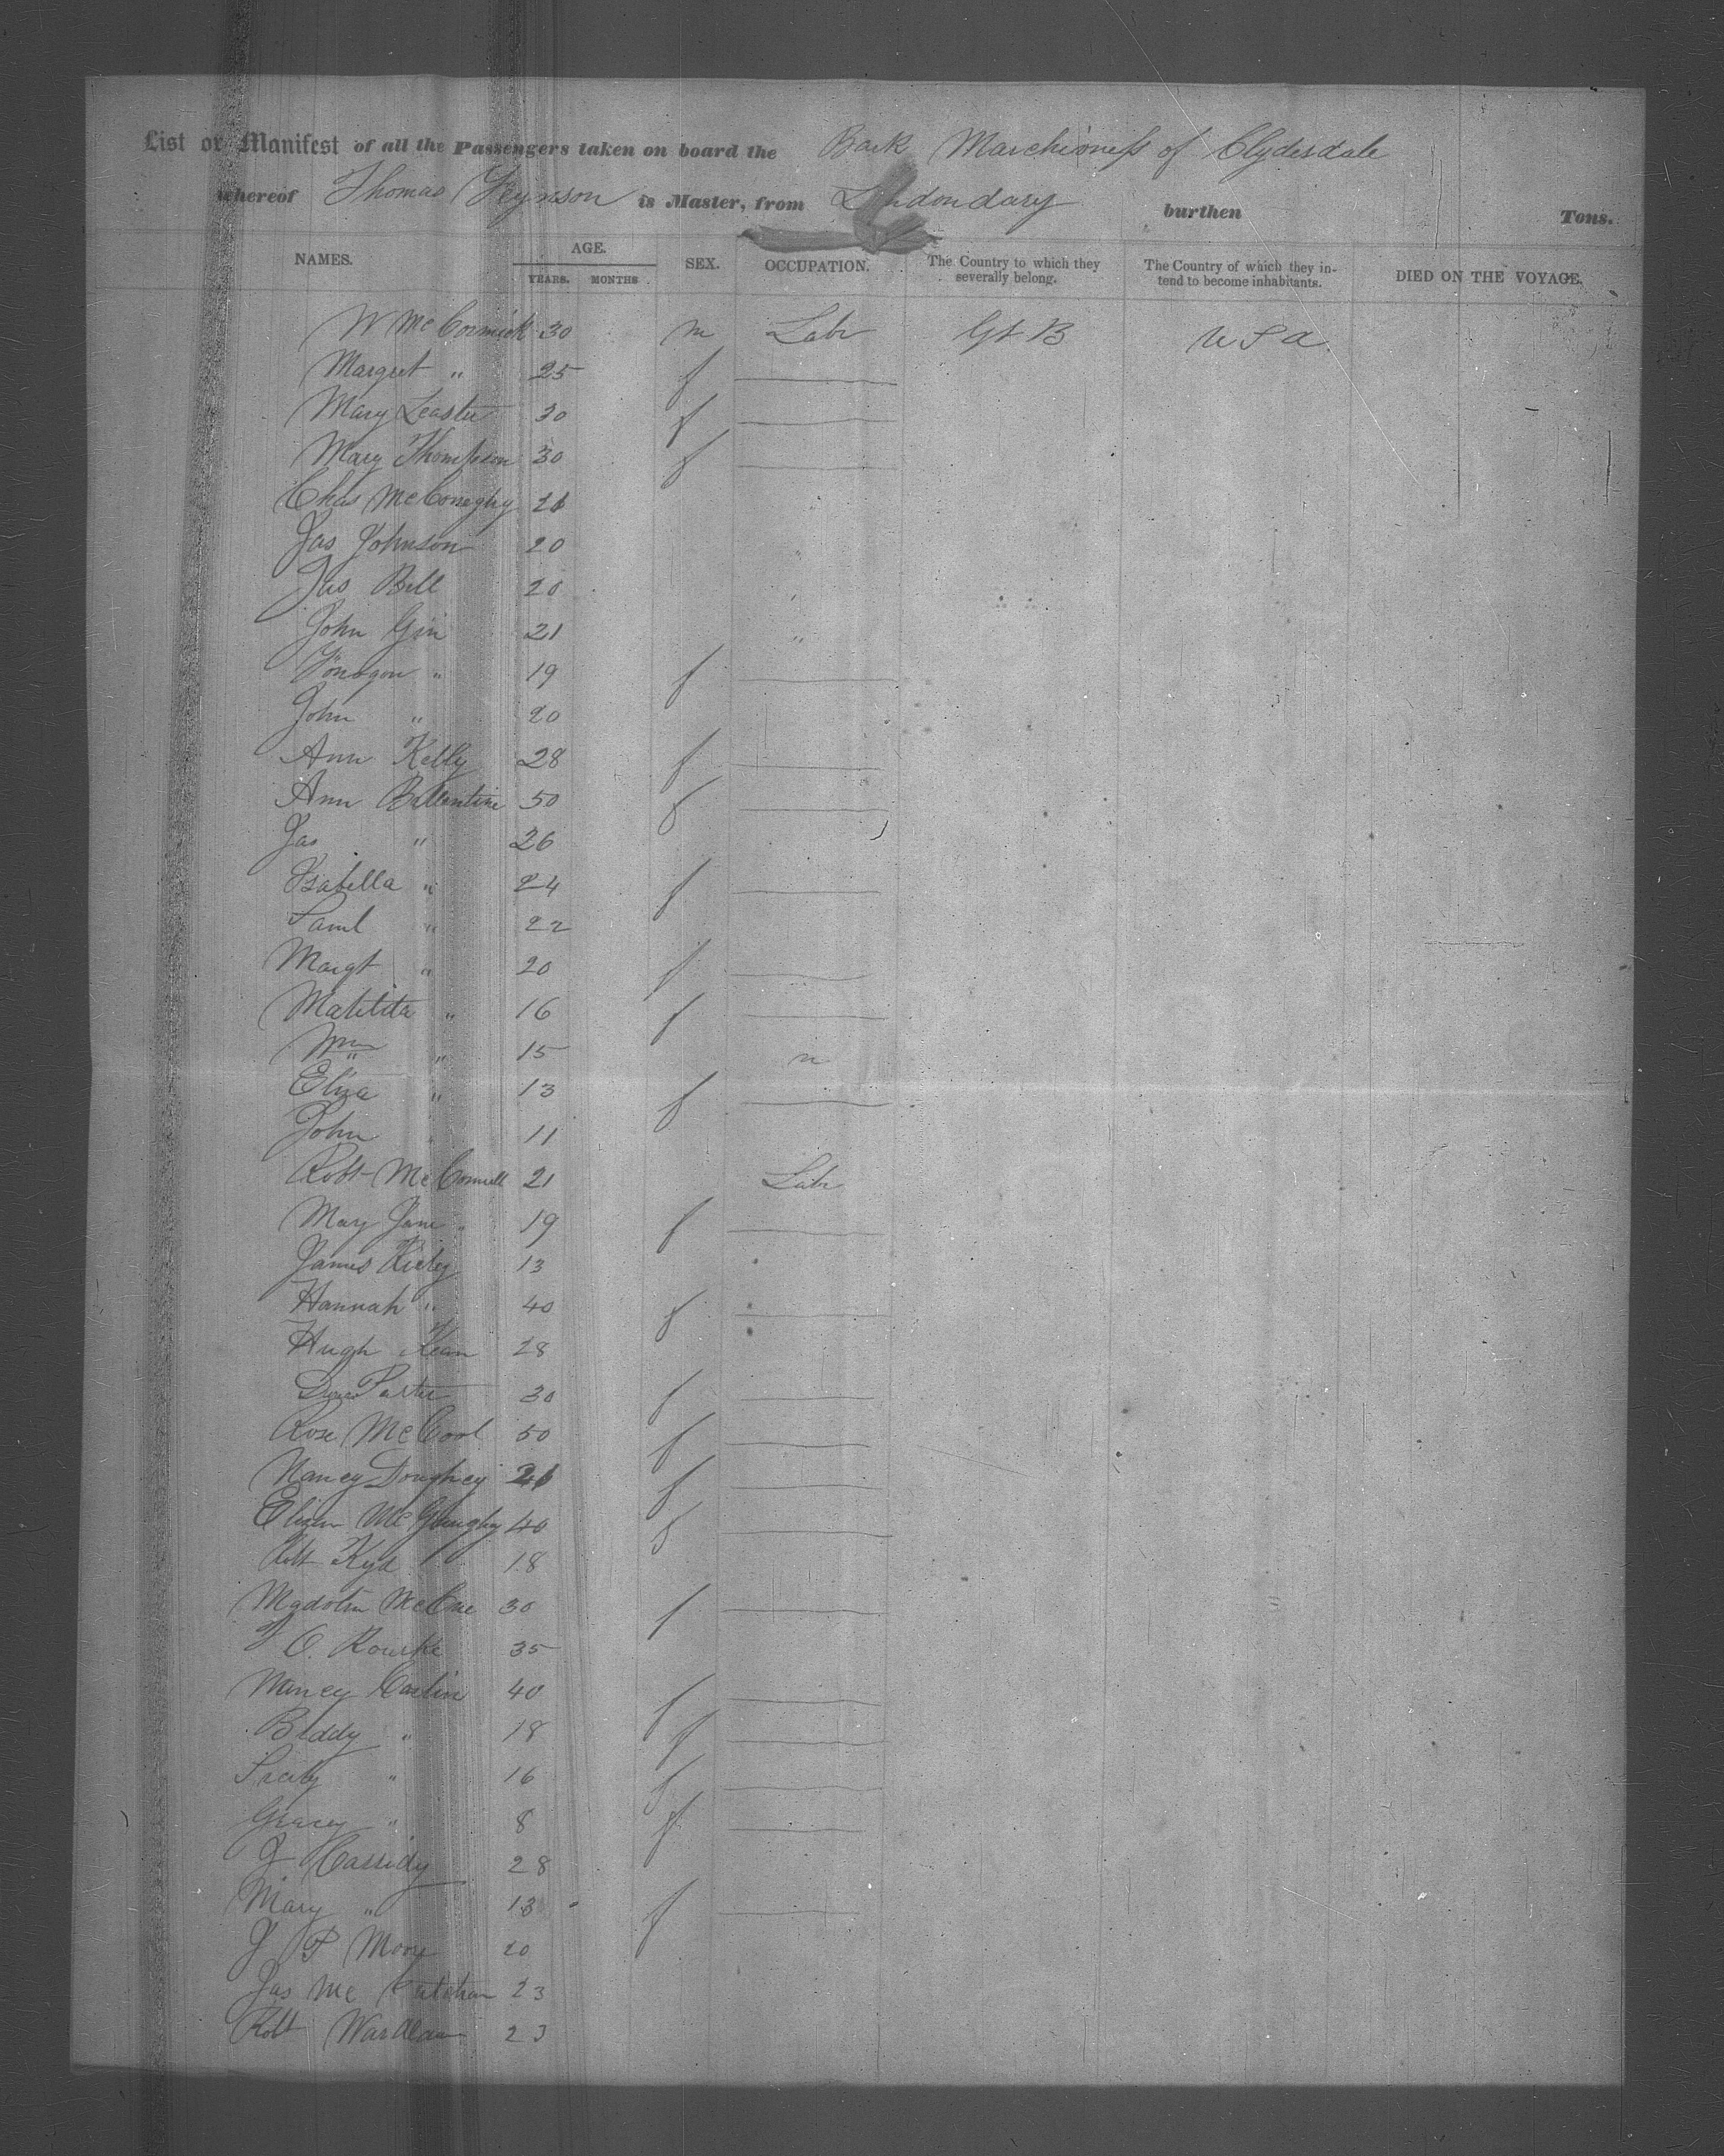 List or Manifest of all the Passengers taken on board the Bark Marchioness of Clydesdale
whereof Thomas is Master, from Londondary burthen Tons.
NAMES. AGE. YEARS. MONTHS. SEX. OCCUPATION. The Country to which they severally belong. The Country of which they intend to become inhabitants. DIED ON THE VOYAGE.
W McCormick 30 m Labr Gt B U S A
Margret " 25 f
Mary Leaster 30 f
Mary Thompson 30 f
Chas McConeghy 21
Jas Johnson 20
Jas Bell 20
John Gin 21 "
" 19 f
John " 20
Ann Kelly 28 f
Ann Ballentine 50 f
Jas " 26
Isabella " 24 f
Saml " 22
Margt " 20 f
Matilita " 16 f
Wm " 15 "
Eliza " 13 f
John " 11
Robt McConnell 21 Labr
Mary Jane " 19 f
James 13
Hannah " 40 f
Hugh Kean 28
Porter 30 f
Rose McCool 50 f
Nancy Doughey 21 f
Elizen 40 f
Robt Kyd 18
30 f
O. Rourke 35
Nancy Carlin 40 f
Biddy " 18 f
Sicily " 16 f
Gracey " 8 f
J Cassidy 28
Mary " 13 f
J P Moore 20
Jas Mc Cutchan 23
Robt Wardlaw 23